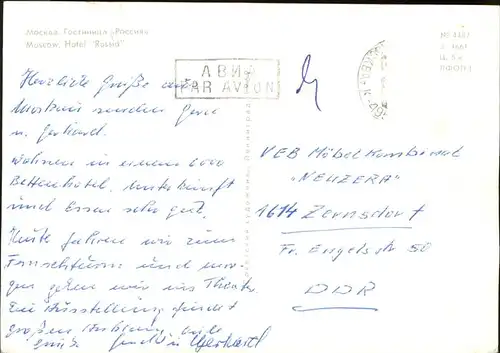 Москва. Гостиница „Россия"
Moscow. Hotel "Rossia"
АВИА
PAR AVION
Herzliche Grüße aus
Moskau senden
u. Gerhard.
Wohnen in einem 6000
Bettenhotel, Unterkunft
und Essen sehr gut.
Heute fahren wir zum
Fernschturm und mor-
gen gehen wir ins Theater.
Die Ausstellung findet
großen
Gerhard
VEB Möbelkombinat
"NEUZERA"
1614 Zernsdorf
Fr. Engels str 50
DDR